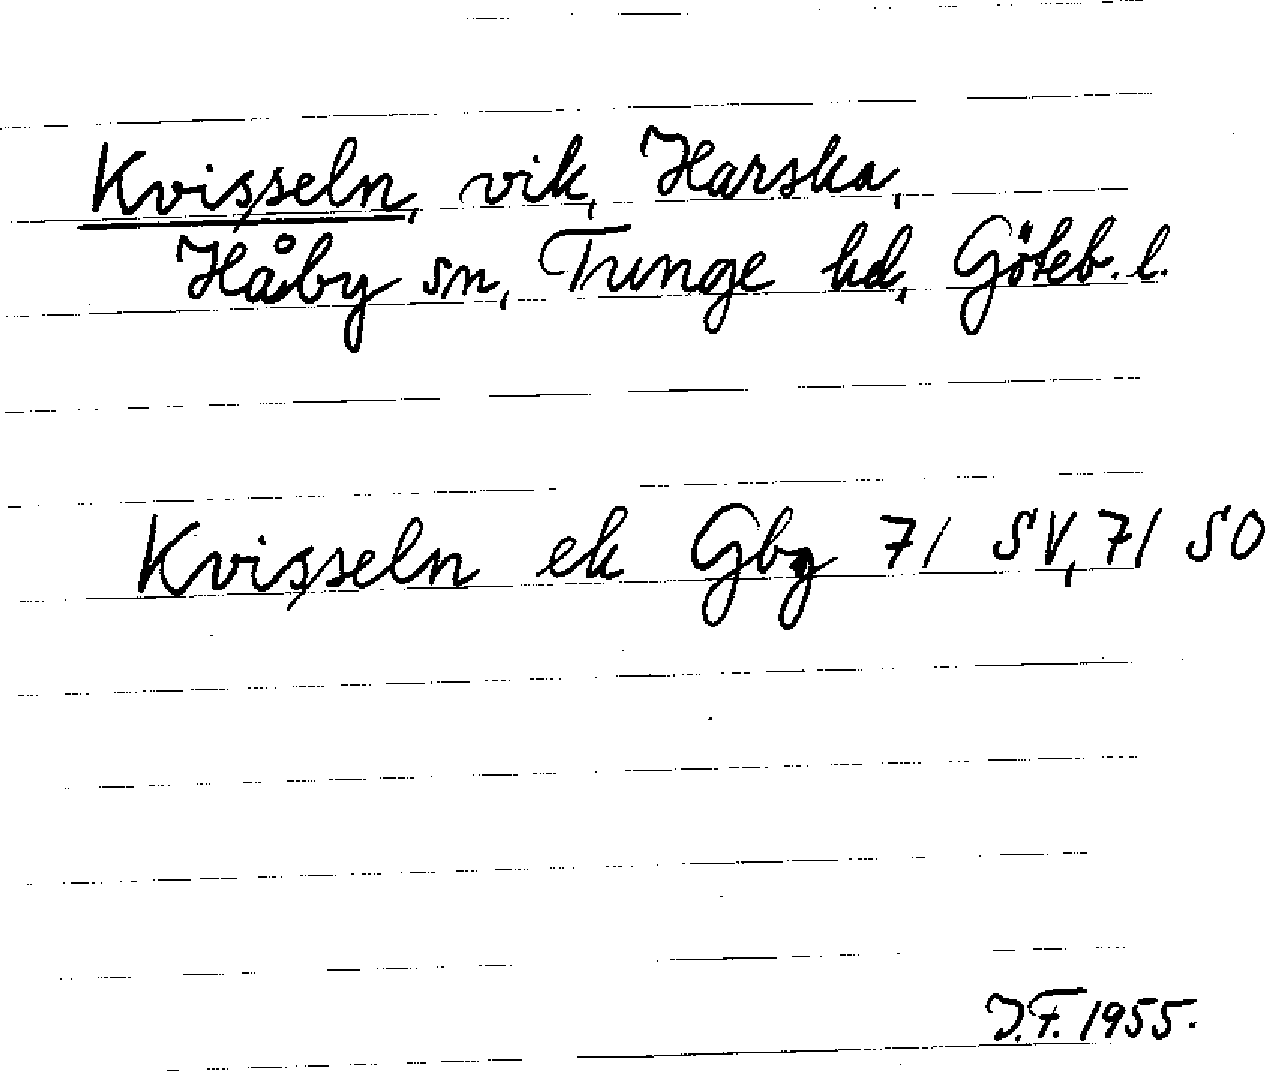 Kvisseln, vik, Harska,
Håby sn, Tunge hd, Göteb. l.
Kvisseln ek Gbg 71 SV, 71 SO
J.F. 1955.